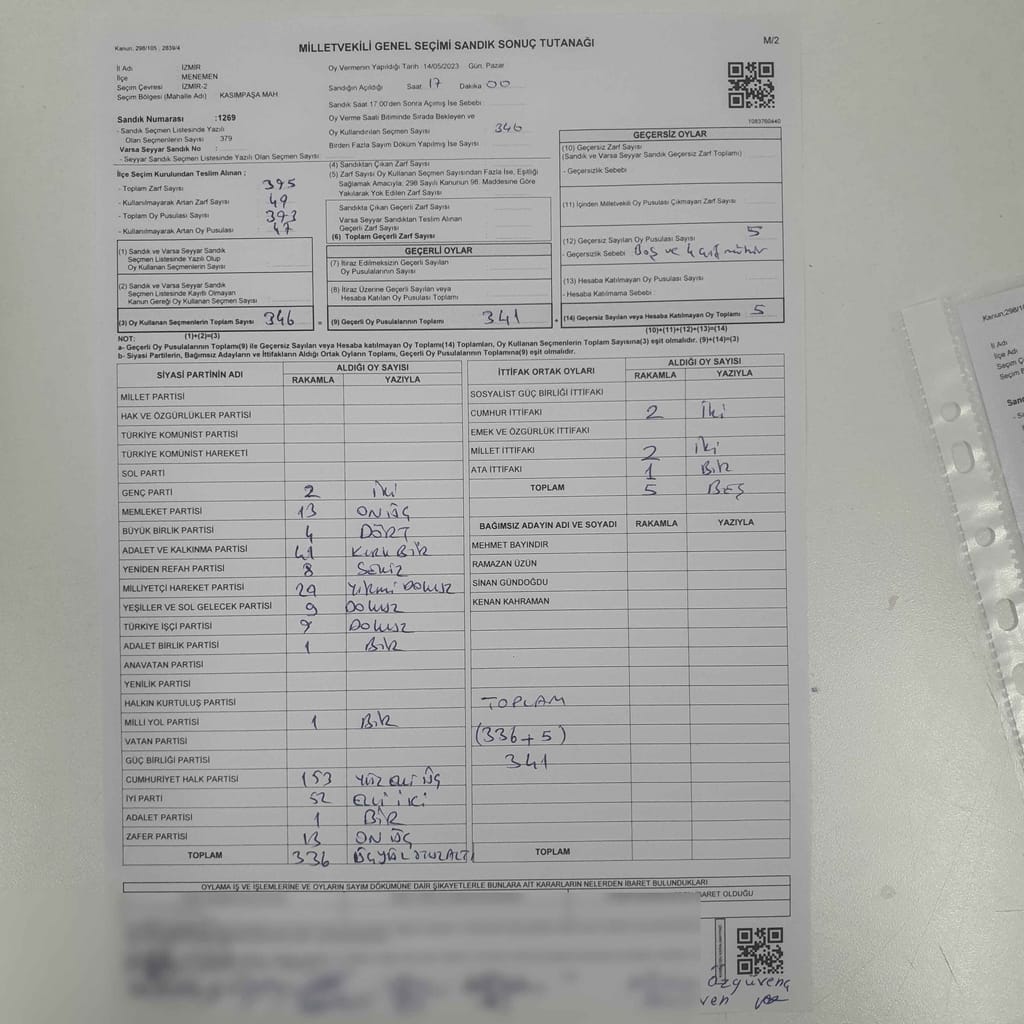 Kanun, 298/105 , 2839/4
MİLLETVEKİLİ GENEL SEÇİMİ SANDIK SONUÇ TUTANAĞI
M/2
İl Adı İZMİR
İlçe MENEMEN
Seçim Çevresi İZMİR-2
Seçim Bölgesi (Mahalle Adı) KASIMPAŞA MAH.
Sandık Numarası :1269
- Sandık Seçmen Listesinde Yazılı
Olan Seçmenlerin Sayısı 379
Varsa Seyyar Sandık No :
- Seyyar Sandık Seçmen Listesinde Yazılı Olan Seçmen Sayısı
İlçe Seçim Kurulundan Teslim Alınan ;
- Toplam Zarf Sayısı 395
- Kullanılmayarak Artan Zarf Sayısı 49
- Toplam Oy Pusulası Sayısı 393
- Kullanılmayarak Artan Oy Pusulası 47
(1) Sandık ve Varsa Seyyar Sandık
Seçmen Listesinde Yazılı Olup
Oy Kullanan Seçmenlerin Sayısı
(2) Sandık ve Varsa Seyyar Sandık
Seçmen Listesinde Kayıtlı Olmayan
Kanun Gereği Oy Kullanan Seçmen Sayısı
(3) Oy Kullanan Seçmenlerin Toplam Sayısı 346
(1)+(2)=(3)
Oy Vermenin Yapıldığı Tarih 14/05/2023 Gün. Pazar
Sandığın Açıldığı Saat 17 Dakika 00
Sandık Saat 17.00'den Sonra Açılmış İse Sebebi
Oy Verme Saati Bitiminde Sırada Bekleyen ve
Oy Kullandırılan Seçmen Sayısı 346
Birden Fazla Sayım Döküm Yapılmış İse Sayısı
(4) Sandıktan Çıkan Zarf Sayısı
(5) Zarf Sayısı Oy Kullanan Seçmen Sayısından Fazla İse, Eşitliği
Sağlamak Amacıyla; 298 Sayılı Kanunun 98. Maddesine Göre
Yakılarak Yok Edilen Zarf Sayısı
Sandıkta Çıkan Geçerli Zarf Sayısı
Varsa Seyyar Sandıktan Teslim Alınan
Geçerli Zarf Sayısı
(6) Toplam Geçerli Zarf Sayısı
GEÇERLİ OYLAR
(7) İtiraz Edilmeksizin Geçerli Sayılan
Oy Pusulalarının Sayısı
(8) İtiraz Üzerine Geçerli Sayılan veya
Hesaba Katılan Oy Pusulası Toplamı
= (9) Geçerli Oy Pusulalarının Toplamı 341
1083760440
GEÇERSİZ OYLAR
(10) Geçersiz Zarf Sayısı
(Sandık ve Varsa Seyyar Sandık Geçersiz Zarf Toplamı)
- Geçersizlik Sebebi
(11) İçinden Milletvekili Oy Pusulası Çıkmayan Zarf Sayısı
(12) Geçersiz Sayılan Oy Pusulası Sayısı 5
- Geçersizlik Sebebi Boş ve 4 çift mühür
(13) Hesaba Katılmayan Oy Pusulası Sayısı
- Hesaba Katılmama Sebebi
+ (14) Geçersiz Sayılan veya Hesaba Katılmayan Oy Toplamı 5
(10)+(11)+(12)+(13)=(14)
NOT:
a- Geçerli Oy Pusulalarının Toplamı(9) ile Geçersiz Sayılan veya Hesaba Katılmayan Oy Toplamı(14) Toplamları, Oy Kullanan Seçmenlerin Toplam Sayısına(3) eşit olmalıdır. (9)+(14)=(3)
b- Siyasi Partilerin, Bağımsız Adayların ve İttifakların Aldığı Ortak Oyların Toplamı, Geçerli Oy Pusulalarının Toplamına(9) eşit olmalıdır.
SİYASİ PARTİNİN ADI ALDIĞI OY SAYISI
RAKAMLA YAZIYLA
MİLLET PARTİSİ
HAK VE ÖZGÜRLÜKLER PARTİSİ
TÜRKİYE KOMÜNİST PARTİSİ
TÜRKİYE KOMÜNİST HAREKETİ
SOL PARTİ
GENÇ PARTİ 2 iki
MEMLEKET PARTİSİ 13 ON ÜÇ
BÜYÜK BİRLİK PARTİSİ 4 DÖRT
ADALET VE KALKINMA PARTİSİ 41 Kırk BİR
YENİDEN REFAH PARTİSİ 8 Sekiz
MİLLİYETÇİ HAREKET PARTİSİ 29 Yirmi Dokuz
YEŞİLLER VE SOL GELECEK PARTİSİ 9 Dokuz
TÜRKİYE İŞÇİ PARTİSİ 9 Dokuz
ADALET BİRLİK PARTİSİ 1 BİR
ANAVATAN PARTİSİ
YENİLİK PARTİSİ
HALKIN KURTULUŞ PARTİSİ
MİLLİ YOL PARTİSİ 1 BİR
VATAN PARTİSİ
GÜÇ BİRLİĞİ PARTİSİ
CUMHURİYET HALK PARTİSİ 153 YÜZ ELLİ ÜÇ
İYİ PARTİ 52 ELLİ İKİ
ADALET PARTİSİ 1 BİR
ZAFER PARTİSİ 13 ON ÜÇ
TOPLAM 336 ÜÇ YÜZ OTUZ ALTI
İTTİFAK ORTAK OYLARI ALDIĞI OY SAYISI
RAKAMLA YAZIYLA
SOSYALİST GÜÇ BİRLİĞİ İTTİFAKI
CUMHUR İTTİFAKI 2 İki
EMEK VE ÖZGÜRLÜK İTTİFAKI
MİLLET İTTİFAKI 2 İki
ATA İTTİFAKI 1 BİR
TOPLAM 5 BEŞ
BAĞIMSIZ ADAYIN ADI VE SOYADI RAKAMLA YAZIYLA
MEHMET BAYINDIR
RAMAZAN ÜZÜN
SİNAN GÜNDOĞDU
KENAN KAHRAMAN
TOPLAM
(336+5)
341
TOPLAM
OYLAMA İŞ VE İŞLEMLERİNE VE OYLARIN SAYIM DÖKÜMÜNE DAİR ŞİKAYETLERLE BUNLARA AİT KARARLARIN NELERDEN İBARET BULUNDUKLARI
İBARET OLDUĞU
Özgüvenç
ven
Kanun,298/10
İl Adı
İlçe Adı
Seçim Ç
Seçim B
Sand